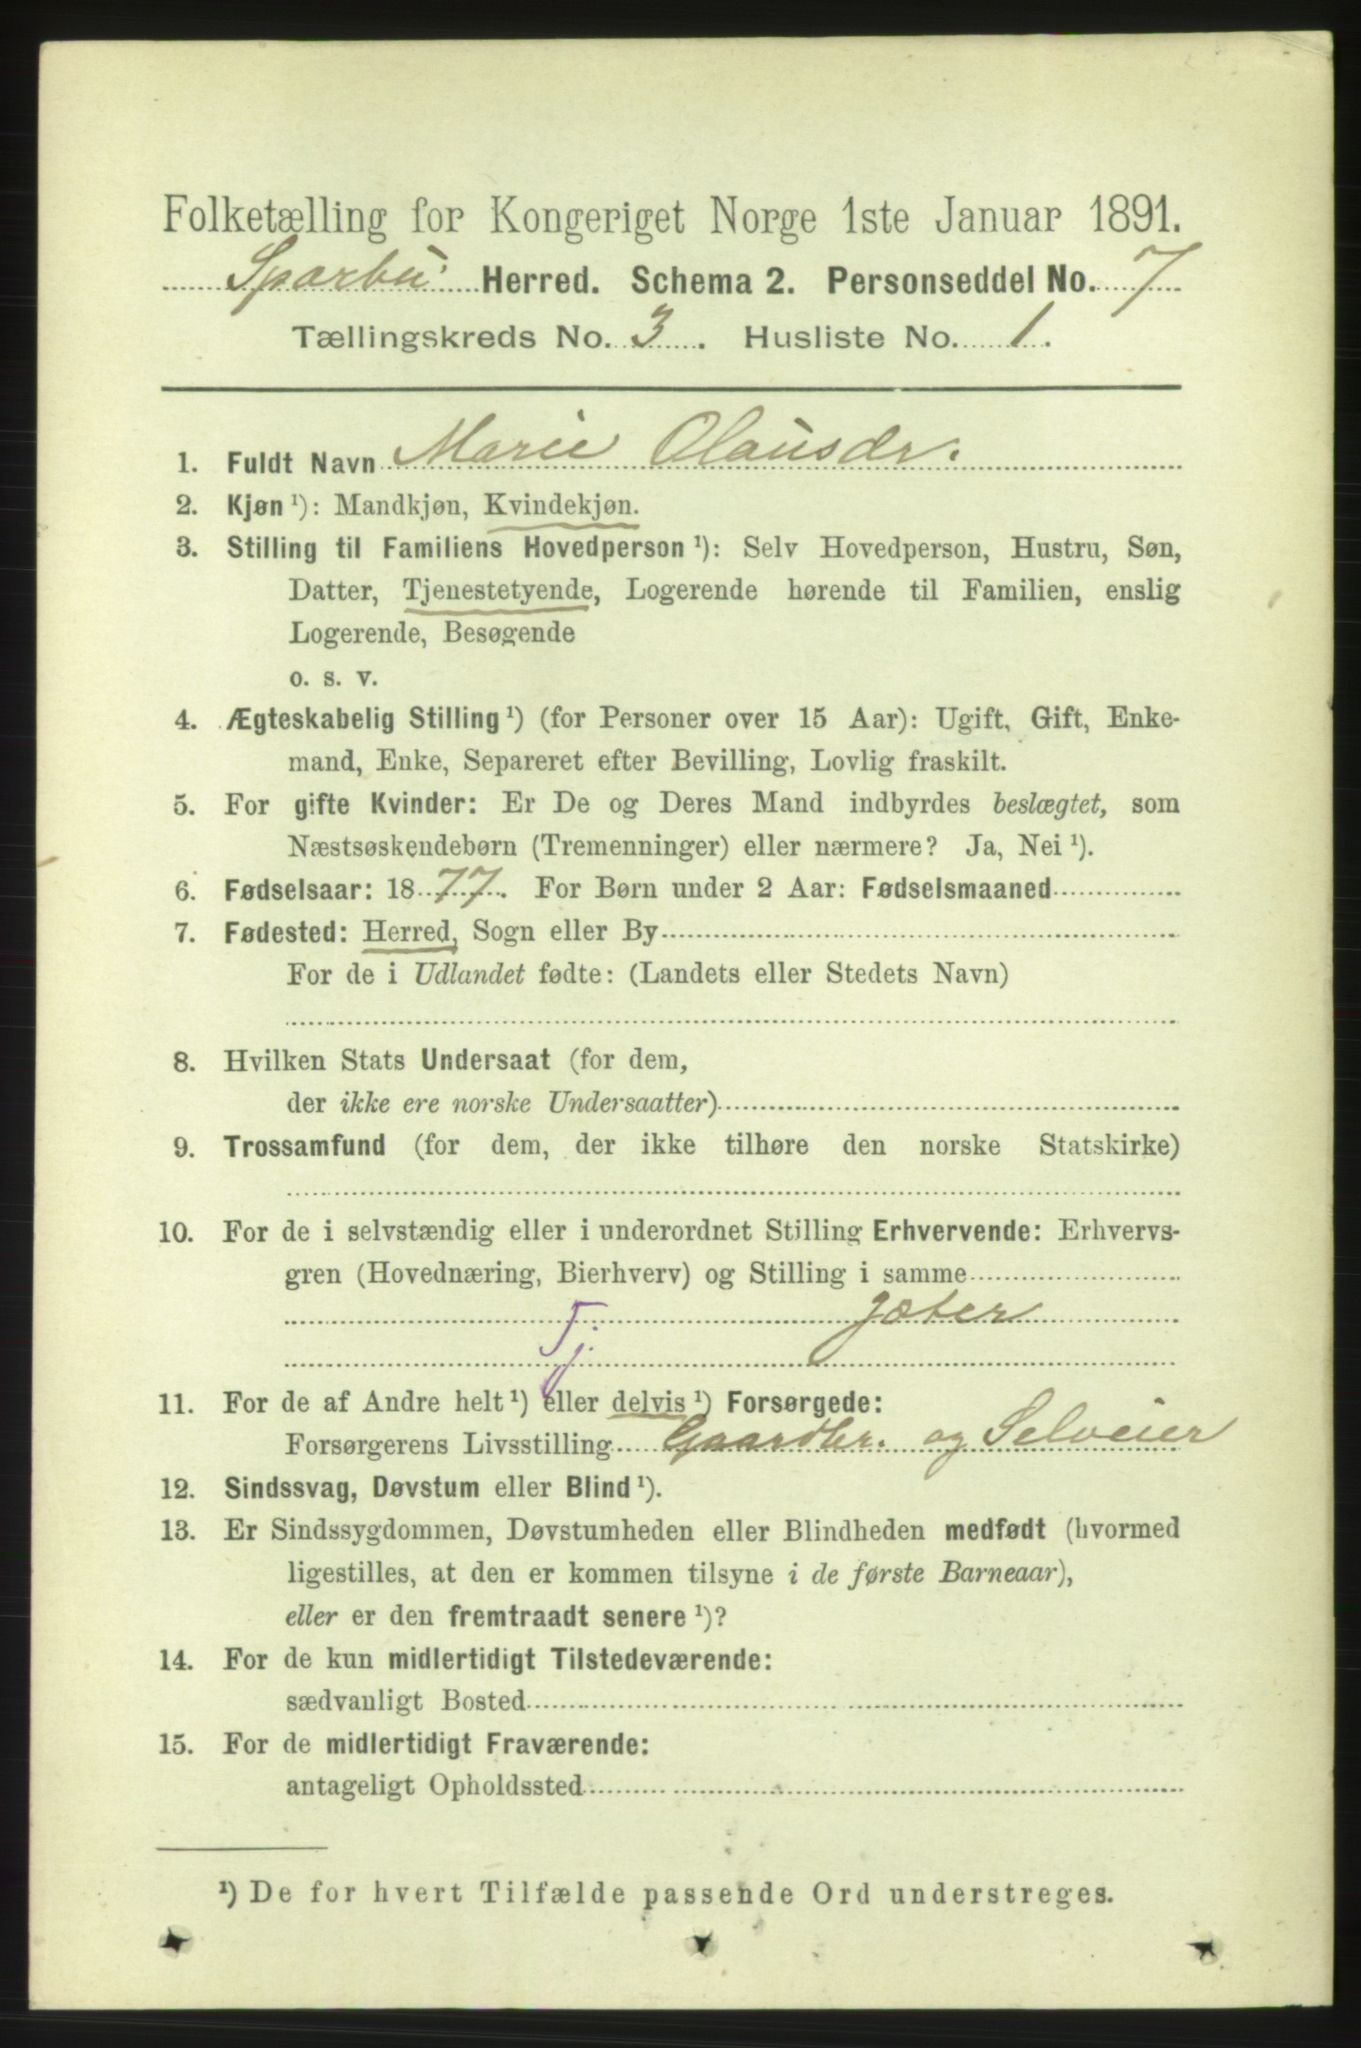 Folketælling for Kongeriget Norge 1ste Januar 1891.
Sparbu Herred. Schema 2. Personseddel No. 7
Tællingskreds No. 3. Husliste No. 1.
1. Fuldt Navn Marie Olausdr.
2. Kjøn ¹): Mandkjøn, Kvindekjøn.
3. Stilling til Familiens Hovedperson ¹): Selv Hovedperson, Hustru, Søn,
Datter, Tjenestetyende, Logerende hørende til Familien, enslig
Logerende, Besøgende
o. s. v.
4. Ægteskabelig Stilling ¹) (for Personer over 15 Aar): Ugift, Gift, Enke-
mand, Enke, Separeret efter Bevilling, Lovlig fraskilt.
5. For gifte Kvinder: Er De og Deres Mand indbyrdes beslægtet, som
Næstsøskendebørn (Tremenninger) eller nærmere? Ja, Nei ¹).
6. Fødselsaar: 1877. For Børn under 2 Aar: Fødselsmaaned
7. Fødested: Herred, Sogn eller By
For de i Udlandet fødte: (Landets eller Stedets Navn)
8. Hvilken Stats Undersaat (for dem,
der ikke ere norske Undersaatter)
9. Trossamfund (for dem, der ikke tilhøre den norske Statskirke)
10. For de i selvstændig eller i underordnet Stilling Erhvervende: Erhvervs-
gren (Hovednæring, Bierhverv) og Stilling i samme
Tj. gjæter
11. For de af Andre helt ¹) eller delvis ¹) Forsørgede:
Forsørgerens Livsstilling Gaardbr. og Selveier
12. Sindssvag, Døvstum eller Blind ¹).
13. Er Sindssygdommen, Døvstumheden eller Blindheden medfødt (hvormed
ligestilles, at den er kommen tilsyne i de første Barneaar),
eller er den fremtraadt senere ¹)?
14. For de kun midlertidigt Tilstedeværende:
sædvanligt Bosted
15. For de midlertidigt Fraværende:
antageligt Opholdssted
¹) De for hvert Tilfælde passende Ord understreges.